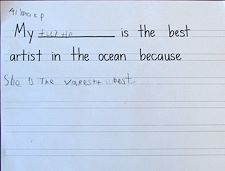 My turtle is the best
artist in the ocean because
She is the varest best